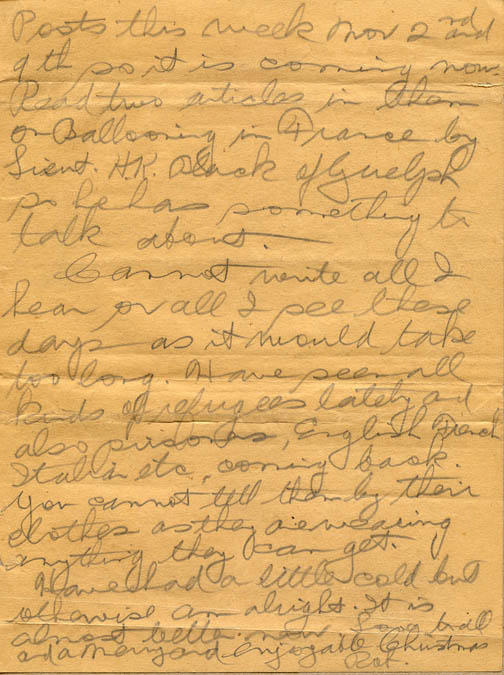 Posts this week Nov 2nd and
9th so it is coming now.
Read two articles in them
on Ballooning in France by
Lieut. H.R. Black of Guelph
so he has something to
talk about.
Cannot write all I
hear or all I see these
days as it would take
too long. Have seen all
kinds of refugees lately and
also prisoners, English French
Italian etc, coming back.
You cannot tell them by their
clothes as they are wearing
anything they can get.
Have had a little cold but
otherwise am alright. It is
almost better now. Love to all
and a Merry and enjoyable Christmas